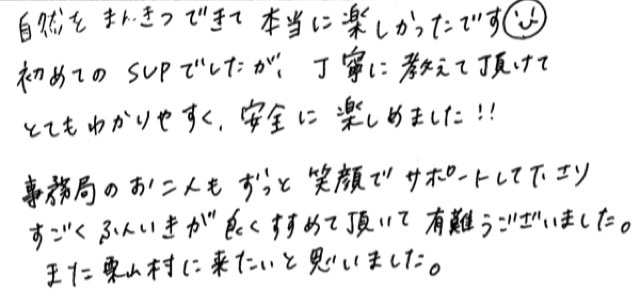 自然をまんきつできて本当に楽しかったです
初めてのSUPでしたが、丁寧に教えて頂けて
とてもわかりやすく、安全に楽しめました!!
事務局のお二人もずっと笑顔でサポートして下さり
すごくふんいきが良くすすめて頂いて有難うございました。
また栗山村に来たいと思いました。